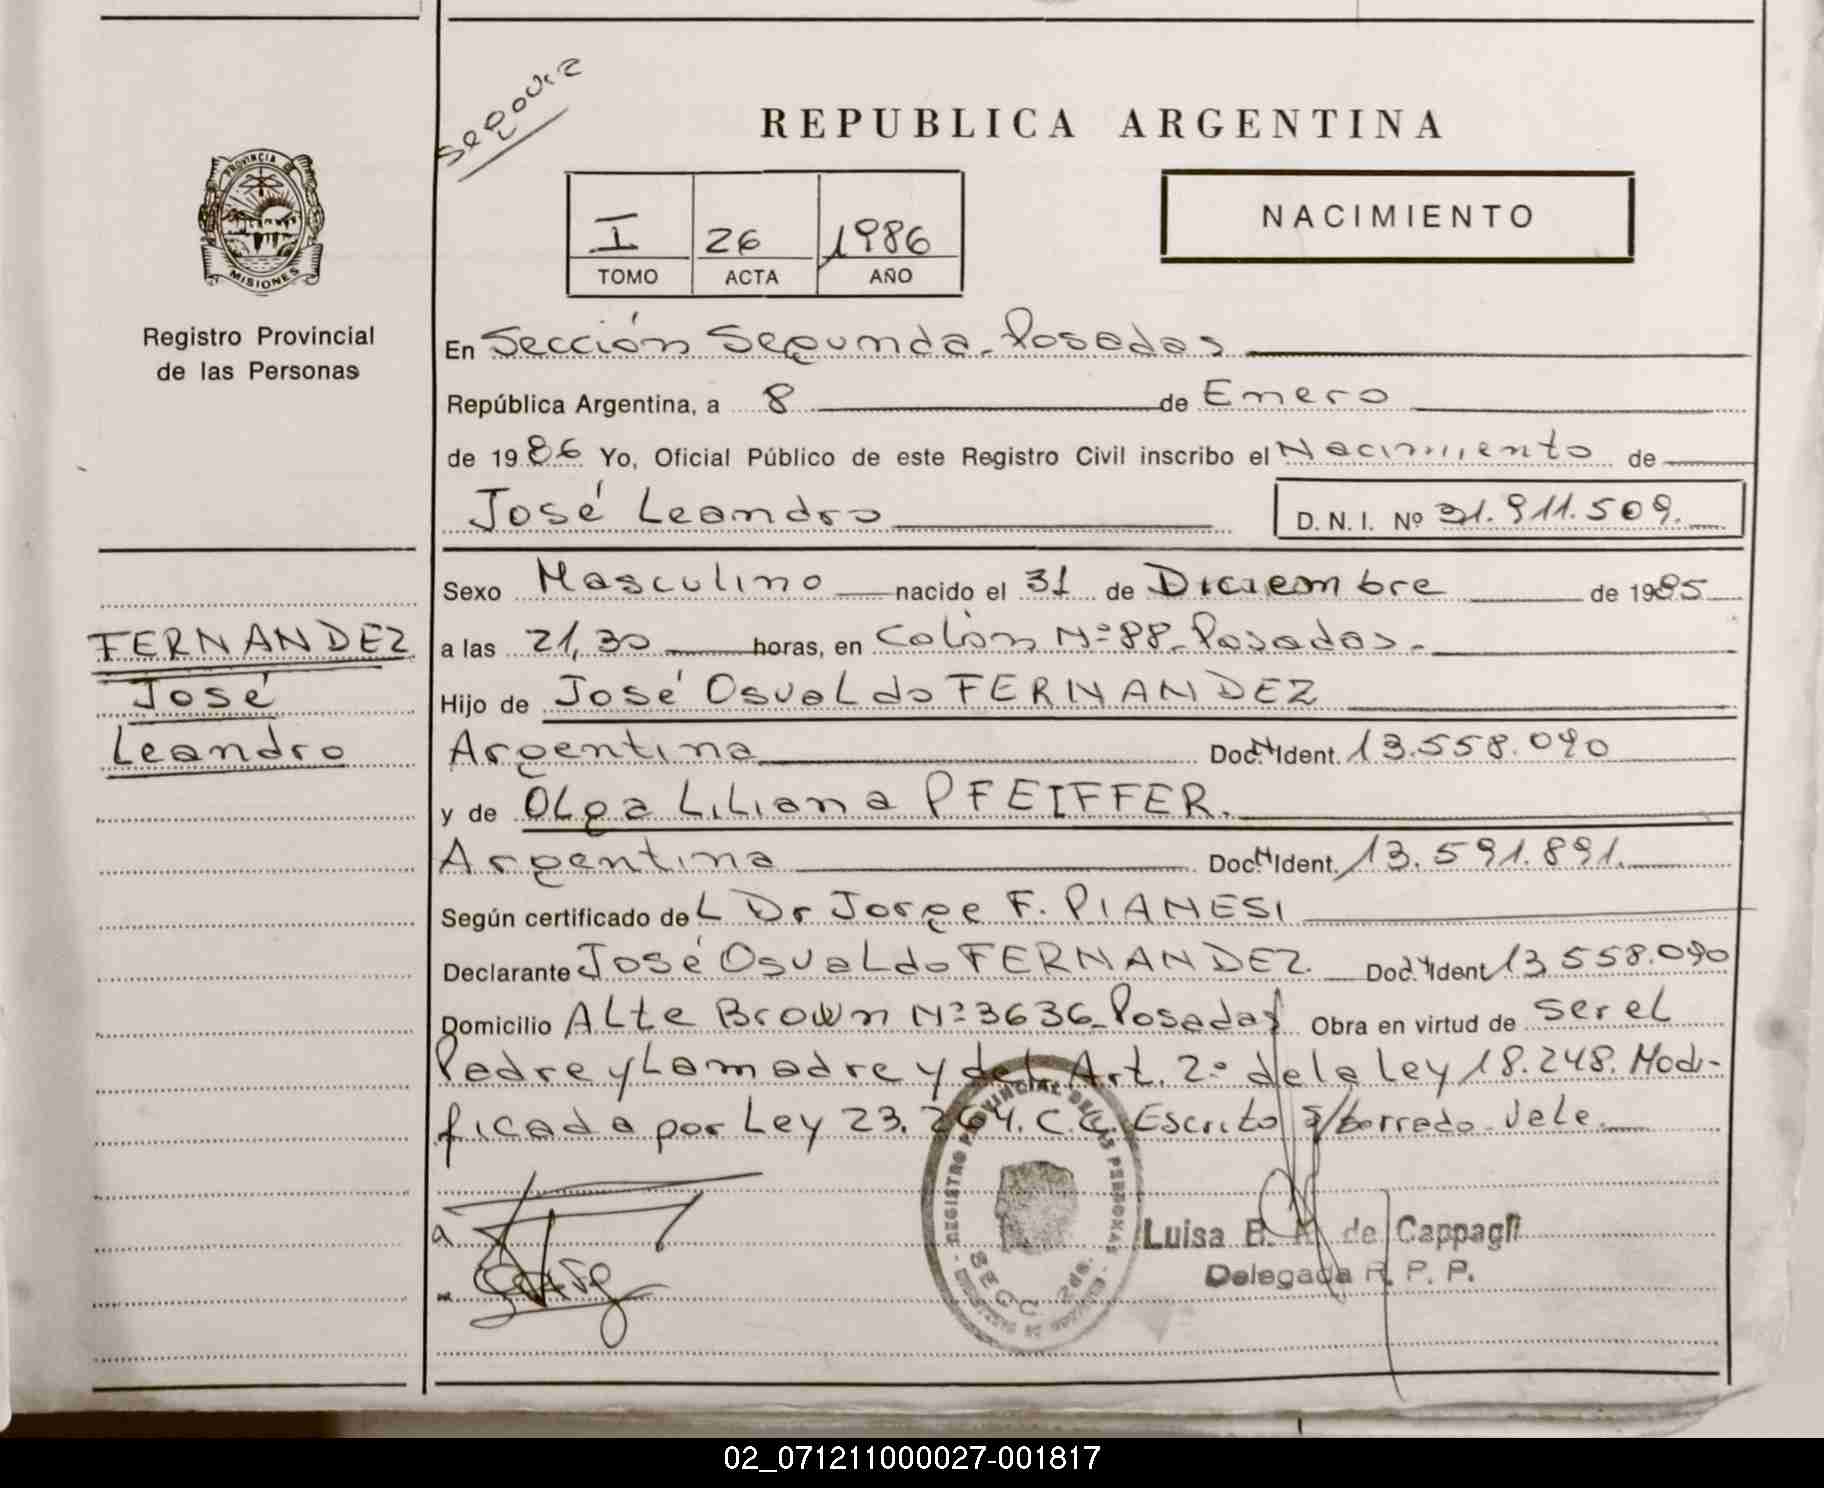 segovia
REPUBLICA ARGENTINA
PROVINCIA DE
MISIONES
I 26 1986
TOMO ACTA AÑO
NACIMIENTO
Registro Provincial
de las Personas
En Sección Segunda - Posadas
República Argentina, a 8 de Enero
de 1986 Yo, Oficial Público de este Registro Civil inscribo el Nacimiento de
José Leandro D. N. I. Nº 31.911.509.
Sexo Masculino nacido el 31 de Diciembre de 1985
FERNANDEZ
José
Leandro
a las 21,30 horas, en Colón Nº 88 - Posadas.-
Hijo de José Osvaldo FERNANDEZ
Argentina Doc. N Ident. 13.558.090
y de Olga Liliana PFEIFFER.
Argentina Doc. N Ident. 13.591.891.
Según certificado del Dr Jorge F. PIANESI
Declarante José Osvaldo FERNANDEZ Doc. N Ident 13.558.090
Domicilio Alte Brown Nº 3636 - Posadas Obra en virtud de ser el
Padre y la madre y del Art. 2º de la Ley 18.248. Modi-
ficada por Ley 23.264. C.C. Escrito s/borrado. Vele.
REGISTRO PROVINCIAL DE LAS PERSONAS
SECC. 2da.
Luisa E. de Cappagli
Delegada R. P. P.
02_071211000027-001817